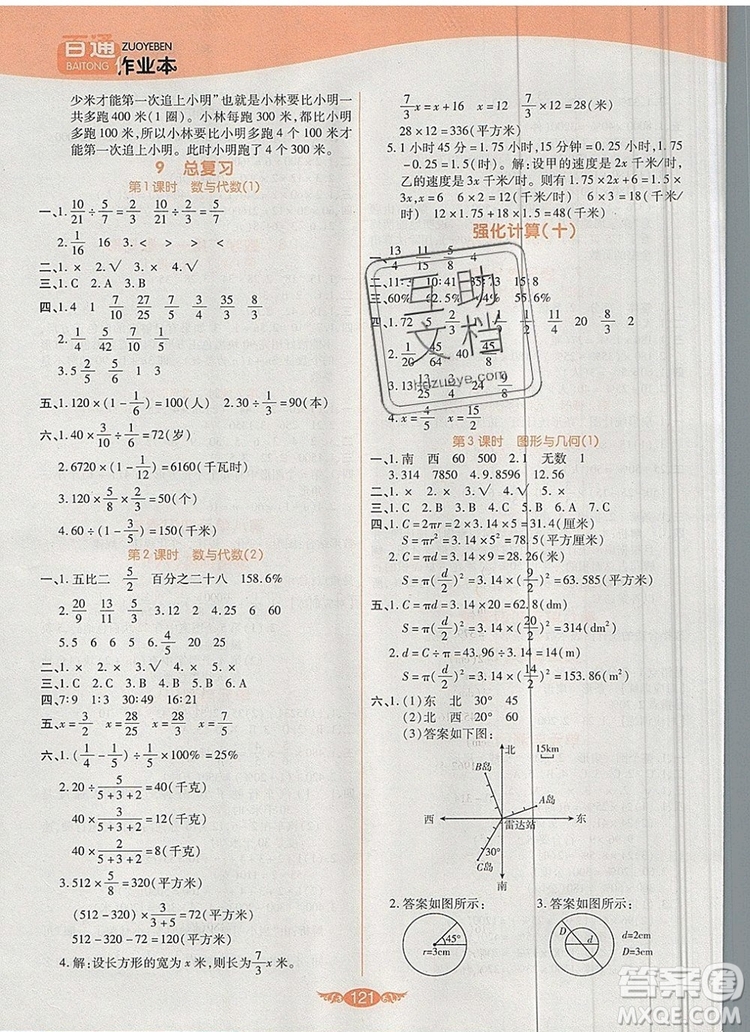 百通 ZUOYEBEN
BAITONG 作业本
少米才能第一次追上小明”也就是小林要比小明一
共多跑 400 米(1 圈)。小林每跑 300 米,都比小明
多跑 100 米,所以小林要比小明多跑 4 个 100 米才
能第一次追上小明。此时小明跑了 300 米。
9 总复习
第 1 课时 数与代数(1)
一、1. 10/21÷5/2 10/21÷2/5
2. 1/16 16 3. < > < >
二、1. × 2. √ 3. × 4. √
三、1. C 2. A 3. C
四、1. 4 1 7/10 27/25 5/7 35/8
2. 1/5 11/24 8/35 1/10 2/3
3. 5 5/2 13/5
五、1. 120×(1-1/6)=100(人) 2. 30÷1/3=90(本)
六、1. 40×3/10÷1/6=72(岁)
2. 6720×(1-1/12)=6160(千瓦时)
3. 120×5/8×2/3=50(个)
4. 60÷(1-3/5)=150(千米)
第 2 课时 数与代数(2)
一、1. 五比二 5/2 百分之二十八 158.6%
2. 20/9 13/11 3. 12 2 4. 25 6 60
5. 5 6 6. 4/5 20 20 15
二、1. × 2. × 3. × 4. √ 5. ×
三、1. C 2. D 3. B 4. C
四、7∶9 1∶3 30∶49 16∶21
五、x=3/2 x=28/25 x=28/3 x=7/5
六、1. (1/4-1/5)÷1/5×100%=25%
2. 20÷5/(5+3+2)=40(千克)
40×3/(5+3+2)=12(千克)
40×2/(5+3+2)=8(千克)
3. 512-320=192(平方米)
(512-320)×3/(3+5)=72(平方米)
512-320-72=120(平方米)
4. 解:设长方形的宽为 x 米,则长为 7/3 x 米。
7/3 x=x+16 x=12 7/3×12=28(米)
28×12=336(平方米)
5. 1 小时 45 分=1.75 小时,15 分钟=0.25 小时,1.75
-0.25=1.5(小时) 解:设甲的速度 2x 千米/时,
乙的速度是 3x 千米/时。1.75×2x+12=1.5×
3x,x=12 12×(1.75+1.5)×2=48(千米)
强化计算(十)
一、13/4 11/15 5/8 4
二、11∶3 10∶41 35∶23 15∶8
三、60% 62.5% 44% 55.6%
四、1. 72 1/2 11/4 20 8/3 2
2. 1/20 45/64
3. 13 24 9/8
4. x=4/5 x=15/2
第 3 课时 图形与几何(1)
一、1. 南 西 60 500 2. 1 无数 1
3. 314 7850 4. 9.8596 12.56
二、1. × 2. × 3. √ 4. √ 5. ×
三、1. C 2. C 3. B 4. C
四、1. C=2πr=2×3.14×5=31.4(厘米)
S=πr²=3.14×5²=78.5(平方厘米)
2. C=πd=3.14×9=28.26(米)
S=π(d/2)²=3.14×(9/2)²=63.585(平方米)
五、1. C=πd=3.14×20=62.8(dm)
S=π(d/2)²=3.14×(20/2)²=314(dm²)
2. d=C÷π=43.96÷3.14=14(m)
S=π(d/2)²=3.14×(14/2)²=153.86(m²)
六、1. (1)东 北 30° 45
(2)北 西 20° 60
(3)答案如下图:
北 15km
B岛
A岛
西 雷达站 东
30°
C岛
南
2. 答案如图所示: 3. 答案如图所示:
45° r=3cm
D d d=2cm D=3cm
121
互助
文档
hdzuoye.com
答案圈
MXQE.COM